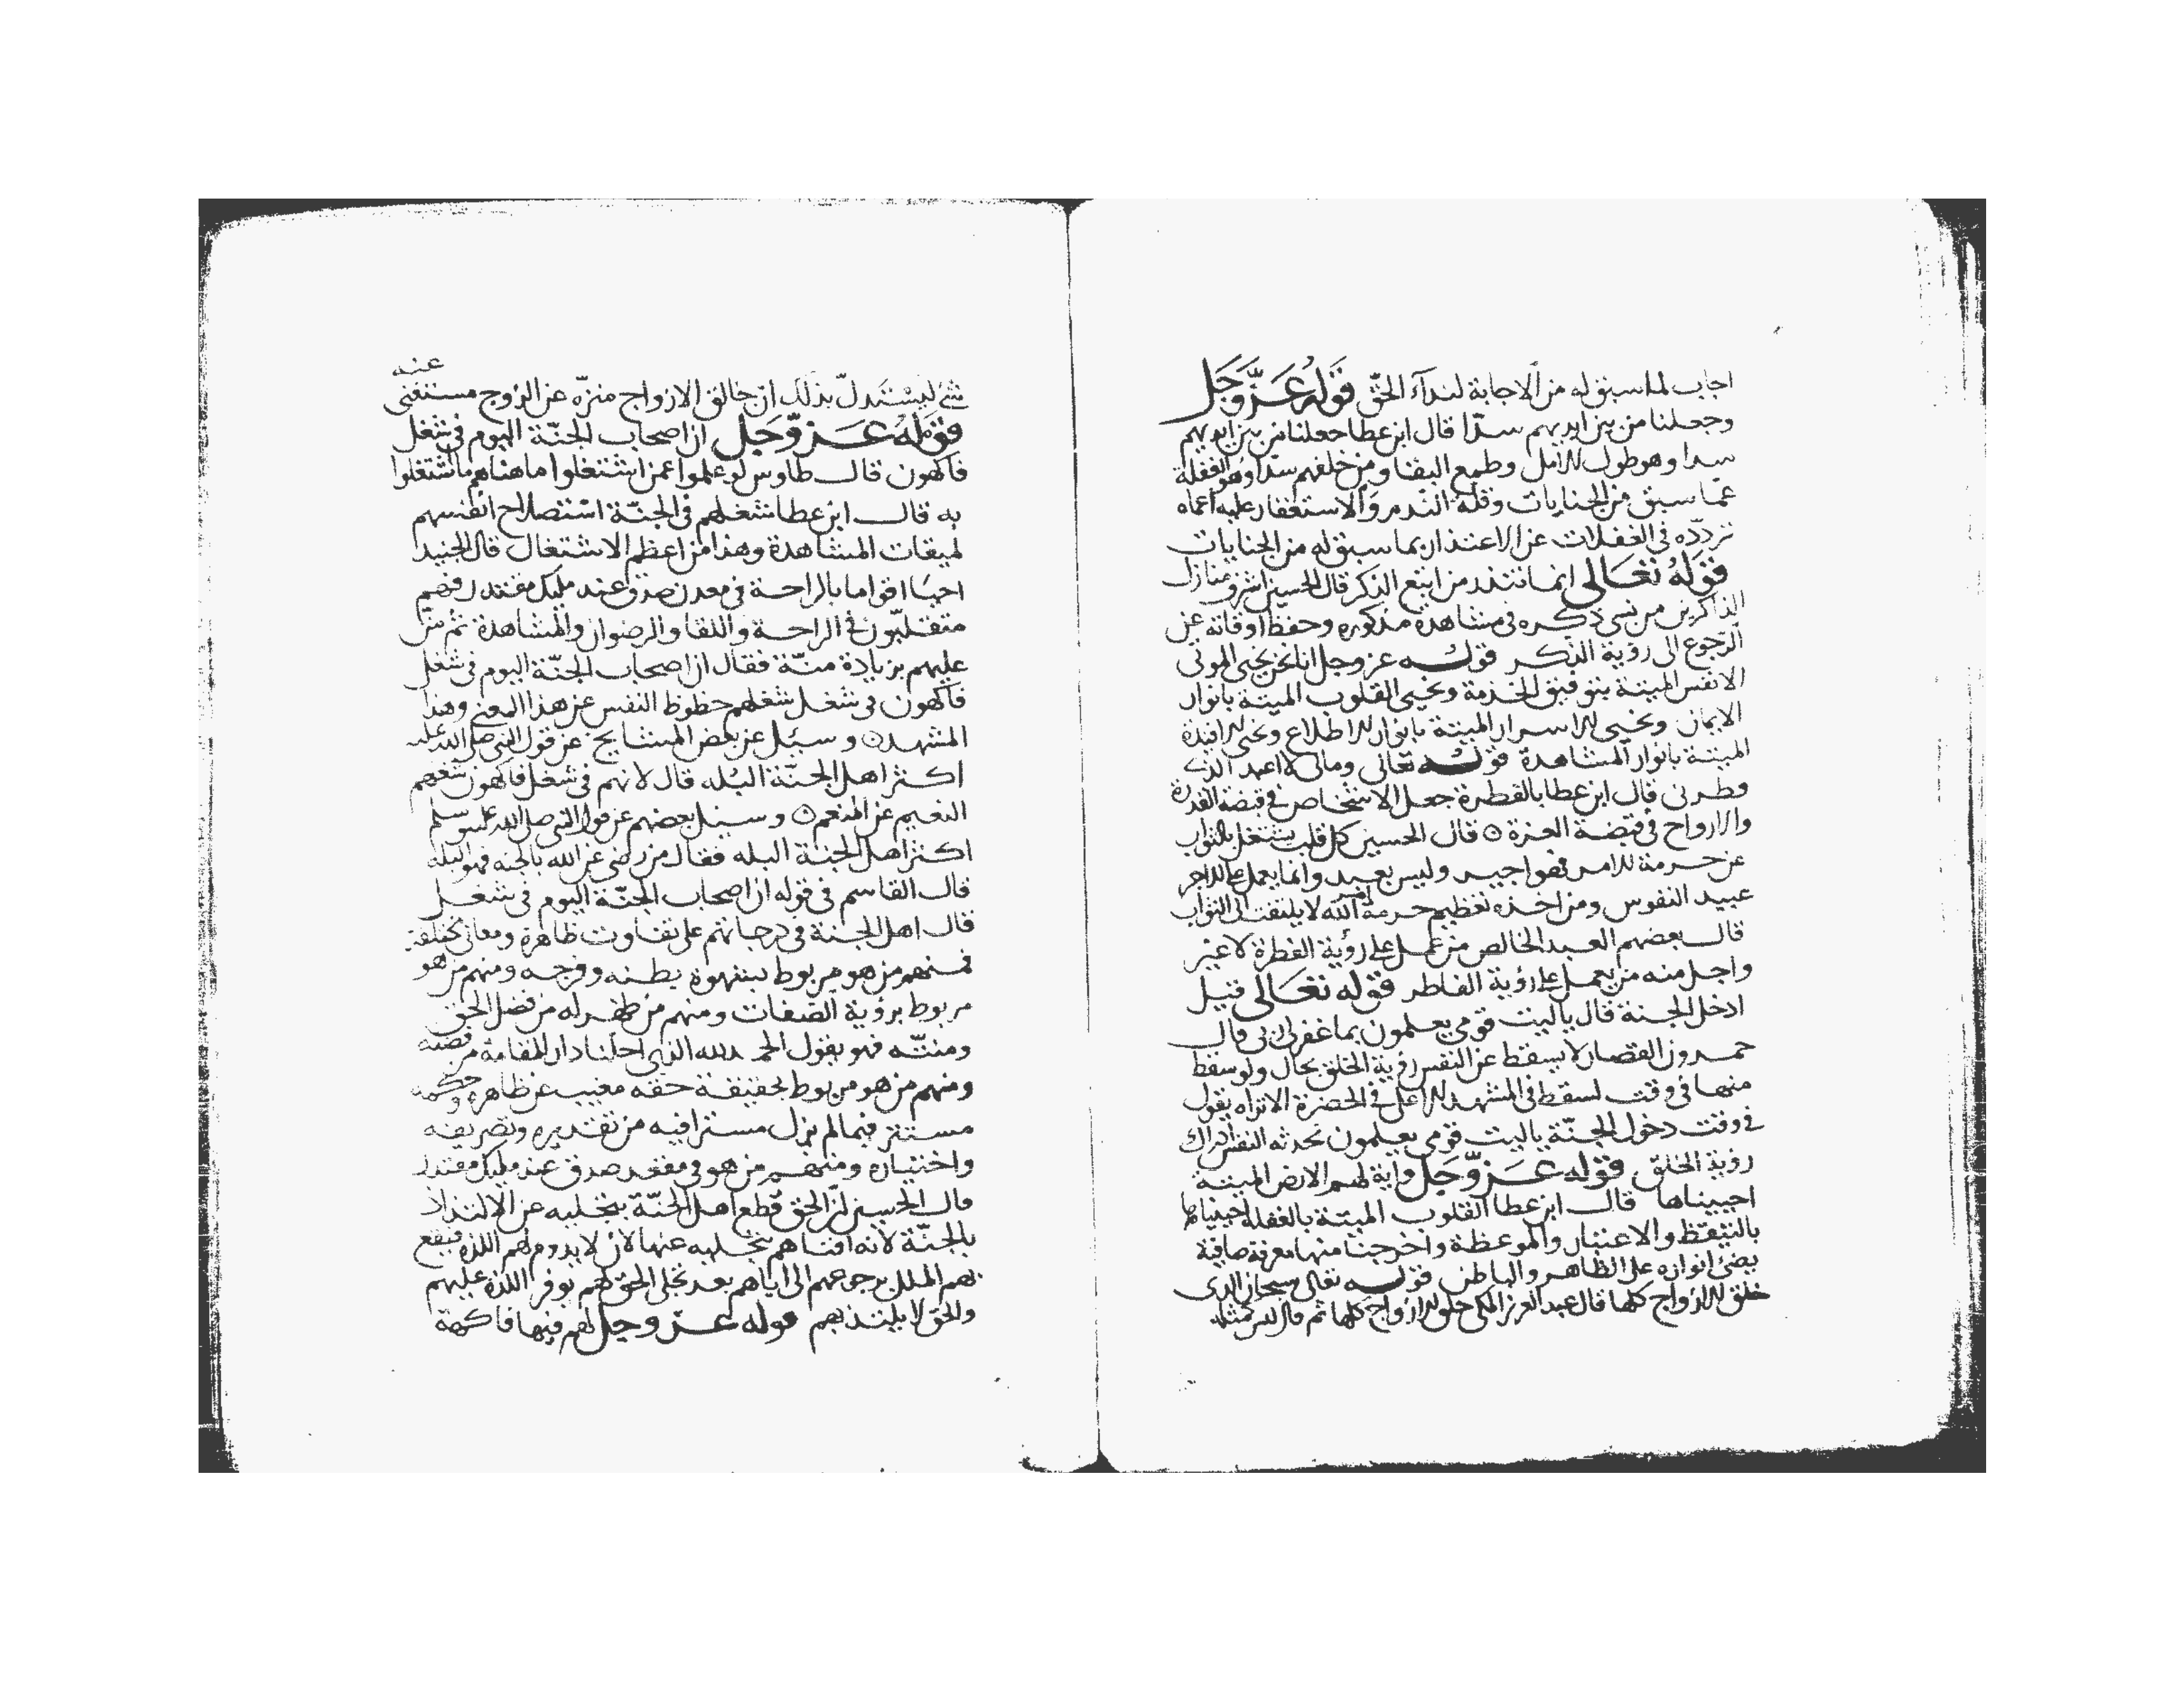 اجاب لما سبق له من الاجابة لندآء الحقّ قوله عزّ وجل
وجعلنا من بين ايديهم سدّا قال ابن عطا جعلنا من بين ايديهم
سدا وهو طول الامل وطمع البقا ومن خلفهم سدّا وهو الغفلة
عمّا سبق من الجنايات وقلة الندم والاستغفار عليه اعماه
تردّده في الغفلات عن الاعتذار بما سبق له من الجنايات
قوله تعالى انما تنذر من اتبع الذكر قال الحسين اشرف منازل
الذاكرين من نسي ذكره في مشاهدة مذكوره وحفظ اوقاته عن
الرّجوع الى رؤية الذكر قوله عز وجل انا نحن نحيي الموتى
الانفس الميتة بتوفيق الخدمة ونحيي القلوب الميتة بانوار
الايمان ونحيي الاسرار الميتة بانوار الاطلاع ونحيي الافئدة
الميتة بانوار المشاهدة قوله تعالى ومالي لا اعبد الذي
فطرني قال ابن عطا بالفطرة جعل الاشخاص في قبضة القدرة
والارواح في قبضة العزة ۞ قال الحسين كل قلب يشتغل بالثواب
عن حرمة الامر فهو اجير وليس بعبد وانما يعمل على الاجر
عبيد النفوس ومن اخذه تعظيم حرمة الله لا يلتفت الى الثواب
قال بعضهم العبد الخالص من عمل على رؤية الفطرة لا غير
واجل منه من يعمل على رؤية الفاطر قوله تعالى قيل
ادخل الجنة قال ياليت قومي يعلمون بما غفر لي ربي قال
حمدون القصار لا يسقط عن النفس رؤية الخلق بحال ولو سقط
منها في وقت لسقط في المشهد الاعلى في الحضرة الا تراه يقول
في وقت دخول الجنّة ياليت قومي يعلمون تحدثه النفس ادراك
رؤية الخلق قوله عزّ وجل واية لهم الارض الميتة
احييناها قال ابن عطا القلوب الميتة بالغفلة احييناها
بالتيقظ والاعتبار والموعظة واخرجنا منها معرفة صافية
يضئ انواره على الظاهر والباطن قوله تعالى سبحان الذي
خلق الازواج كلها قال عبد العزيز المكي خلق الازواج كلها ثم قال ليس كمثله
شئ ليستدلّ بذلك ان خالق الازواج منزّه عن الزوج مستغنى عنه
قوله عزّ وّجل ان اصحاب الجنّة اليوم في شغل
فاكهون قال طاوس لو علموا عمن اشتغلوا ما هناهم ما اشتغلوا
به قال ابن عطا شغلهم في الجنّة استصلاح انفسهم
لميقات المشاهدة وهذا من اعظم الاشتغال قال الجنيد
احيا اقواما بالراحة في معدن صدق عند مليك مقتدر فهم
متقلّبون في الراحة واللقا والرضوان والمشاهدة ثم منّ
عليهم بزيادة منّة فقال ان اصحاب الجنّة اليوم في شغل
فاكهون في شغل شغلهم حظوظ النفس عن هذا المعنى وهذا
المشهد ۞ وسئل عن بعض المشايخ عن قول النبي صلى الله عليه
اكثر اهل الجنّة البله قال لانهم في شغل فاكهون شغلهم
النعيم عن المنعم ۞ وسئل بعضهم عن قول النبي صلى الله عليه وسلم
اكثر اهل الجنة البله فقال من رضي عن الله بالجنه فهو ابله
قال القاسم في قوله ان اصحاب الجنّة اليوم في شغل
قال اهل الجنة في درجاتهم على تفاوت ظاهرة ومعاني مختلفة
فمنهم من هو مربوط بشهوة بطنه وفرجه ومنهم من هو
مربوط برؤية الصّفات ومنهم من ظهر له من فضل الحق
ومنّته فهو يقول الحمد لله الذي احلنا دار المقامة من فضله
ومنهم من هو مربوط بحقيقة حقه مغيب عن ظاهره وحكمه
مستقر فيما لم يزل مستزافيه من تقديره وتصريفه
واختياره ومنهم من هو في مقعد صدق عند مليك مقتدر
قال الحسين انّ الحق قطع اهل الجنّة بتجليه عن الالتذاذ
بالجنّة لانه افناهم بتجليه عنها لان لا يدوم لهم اللذة فيقع
بهم الملل برجوعهم الى اياهم بعد تجلى الحق لهم توفر اللذة عليهم
والحق لا يلتذ بهم قوله عزّ وجل لهم فيها فاكهة